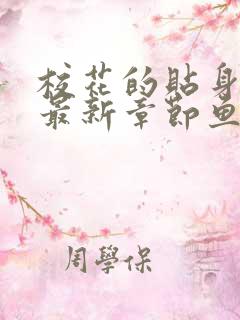 校花的貼身
最新章節魚
周學保